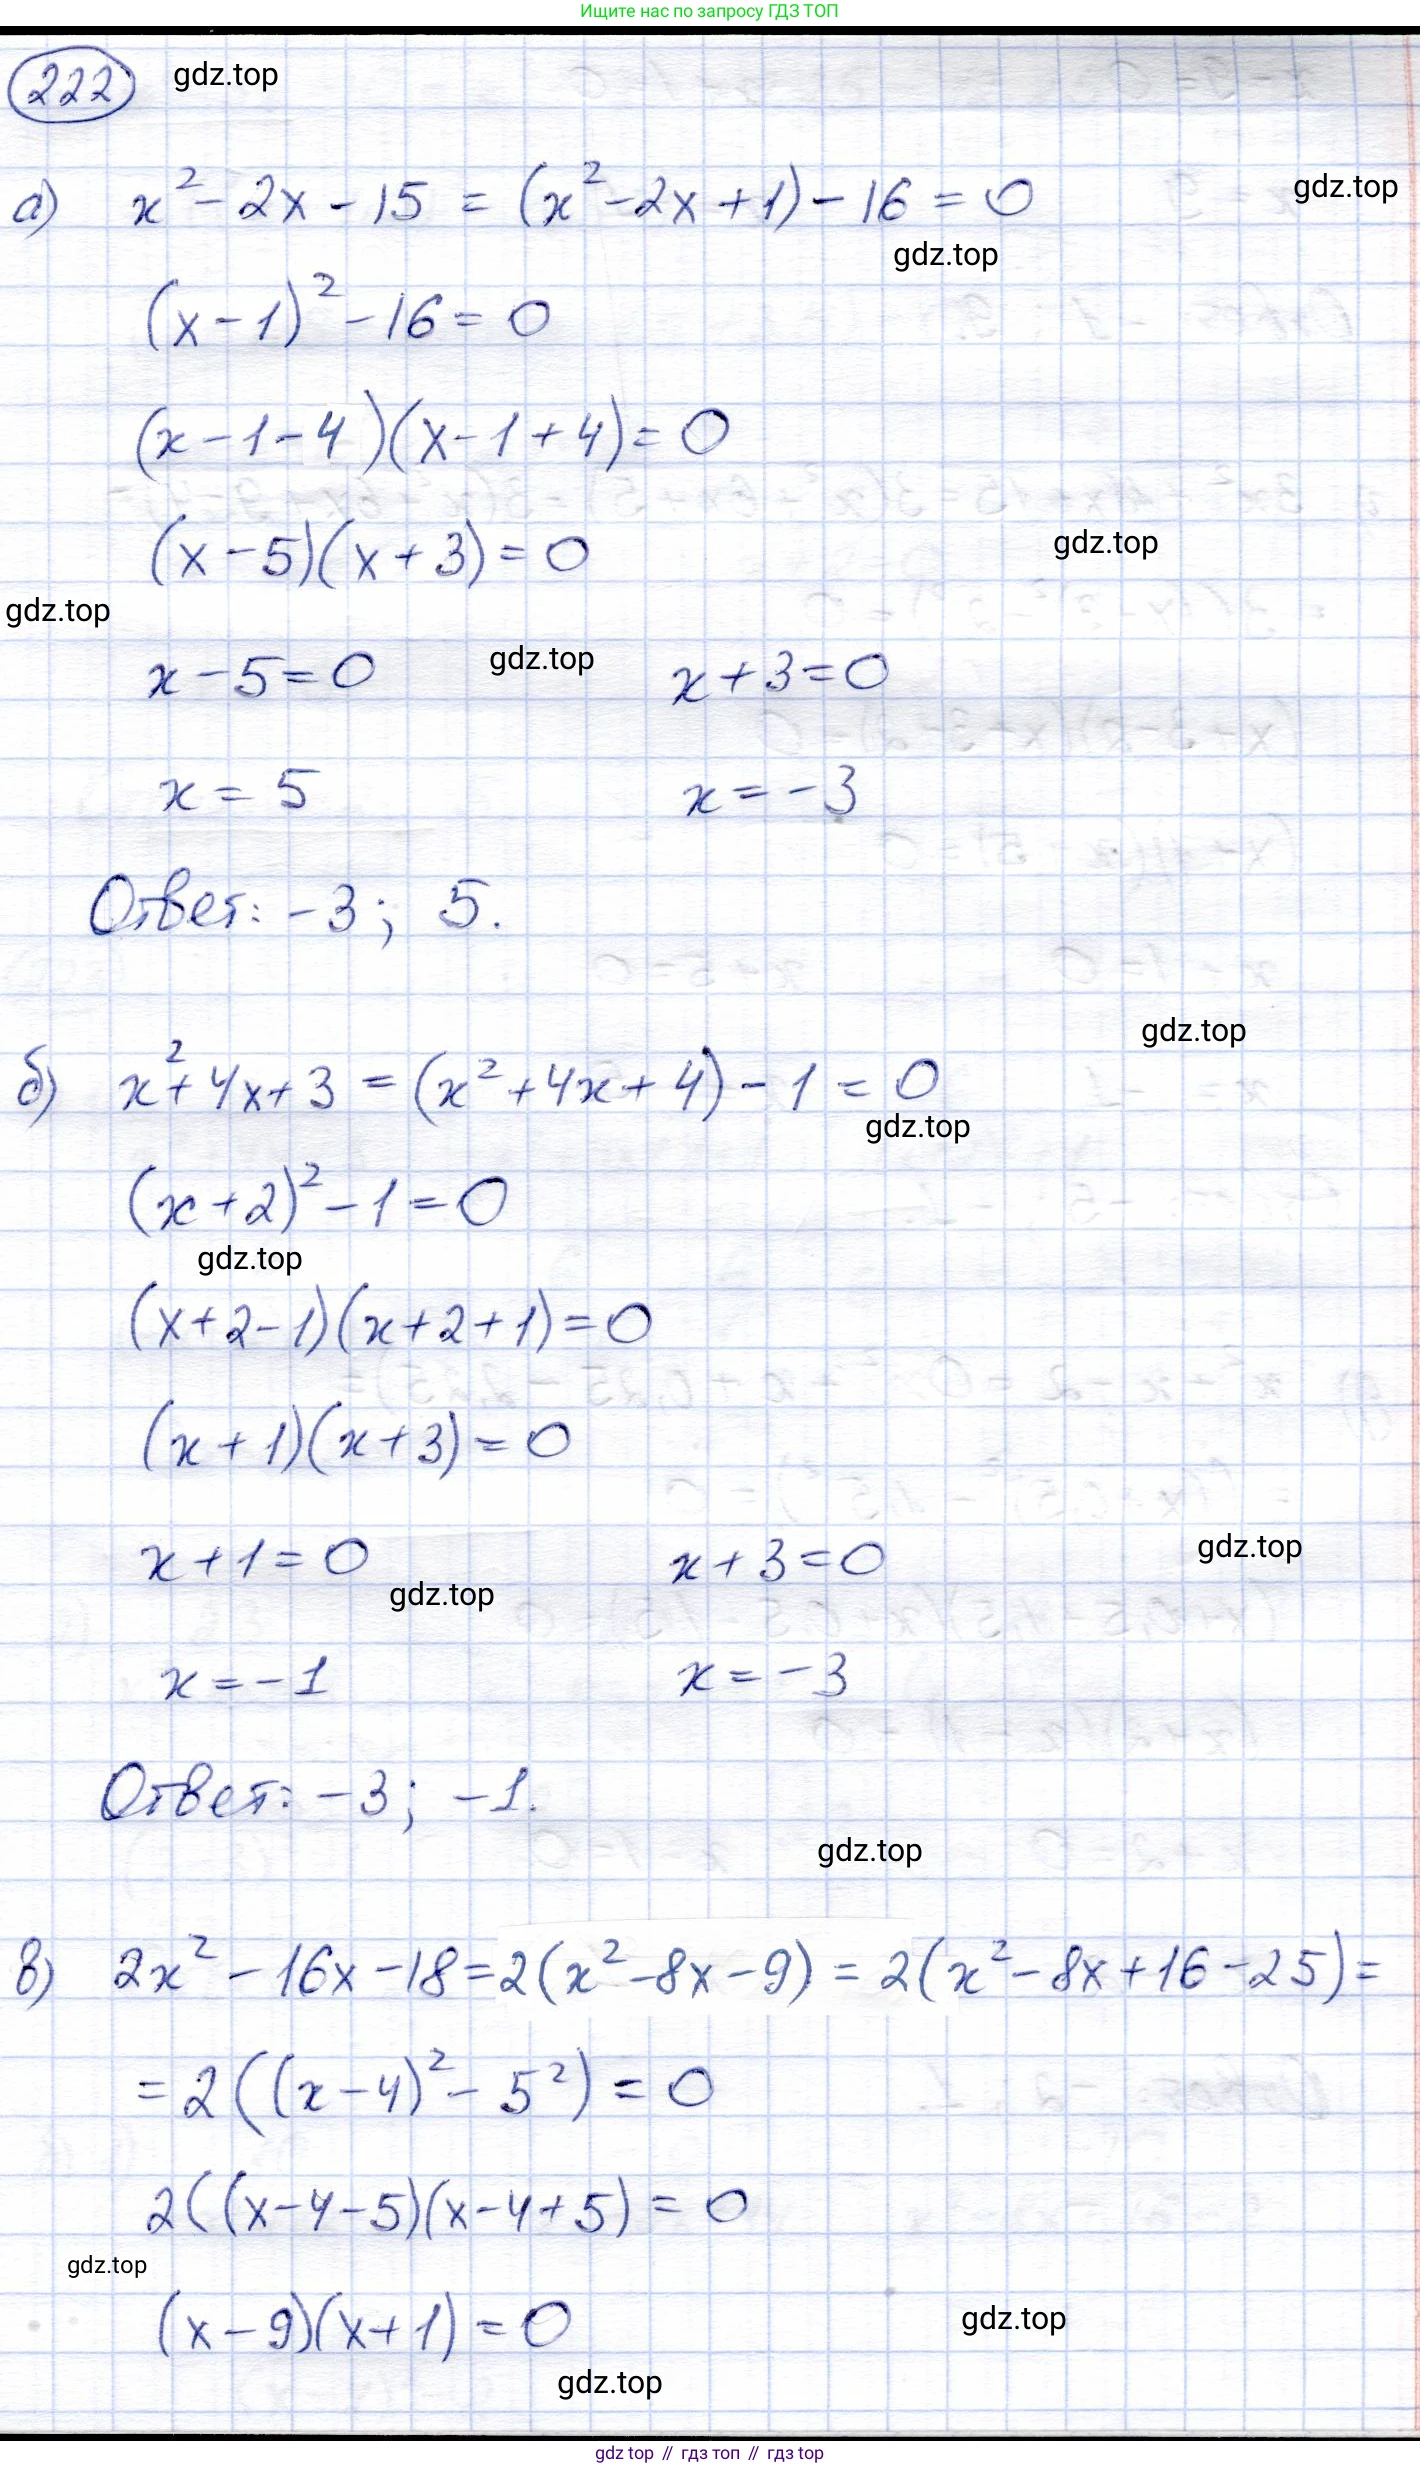 Ищите нас по запросу ГДЗ ТОП
222 gdz.top
а) x² - 2x - 15 = (x² - 2x + 1) - 16 = 0 gdz.top
gdz.top
(x - 1)² - 16 = 0
(x - 1 - 4)(x - 1 + 4) = 0
(x - 5)(x + 3) = 0 gdz.top
gdz.top
x - 5 = 0 gdz.top x + 3 = 0
x = 5 x = -3
Ответ: -3; 5.
gdz.top
б) x² + 4x + 3 = (x² + 4x + 4) - 1 = 0
gdz.top
(x + 2)² - 1 = 0
gdz.top
(x + 2 - 1)(x + 2 + 1) = 0
(x + 1)(x + 3) = 0
x + 1 = 0 x + 3 = 0 gdz.top
gdz.top
x = -1 x = -3
Ответ: -3; -1.
gdz.top
в) 2x² - 16x - 18 = 2(x² - 8x - 9) = 2(x² - 8x + 16 - 25) =
= 2((x - 4)² - 5²) = 0
2((x - 4 - 5)(x - 4 + 5) = 0
gdz.top
(x - 9)(x + 1) = 0 gdz.top
gdz.top
gdz top // гдз топ // гдз top